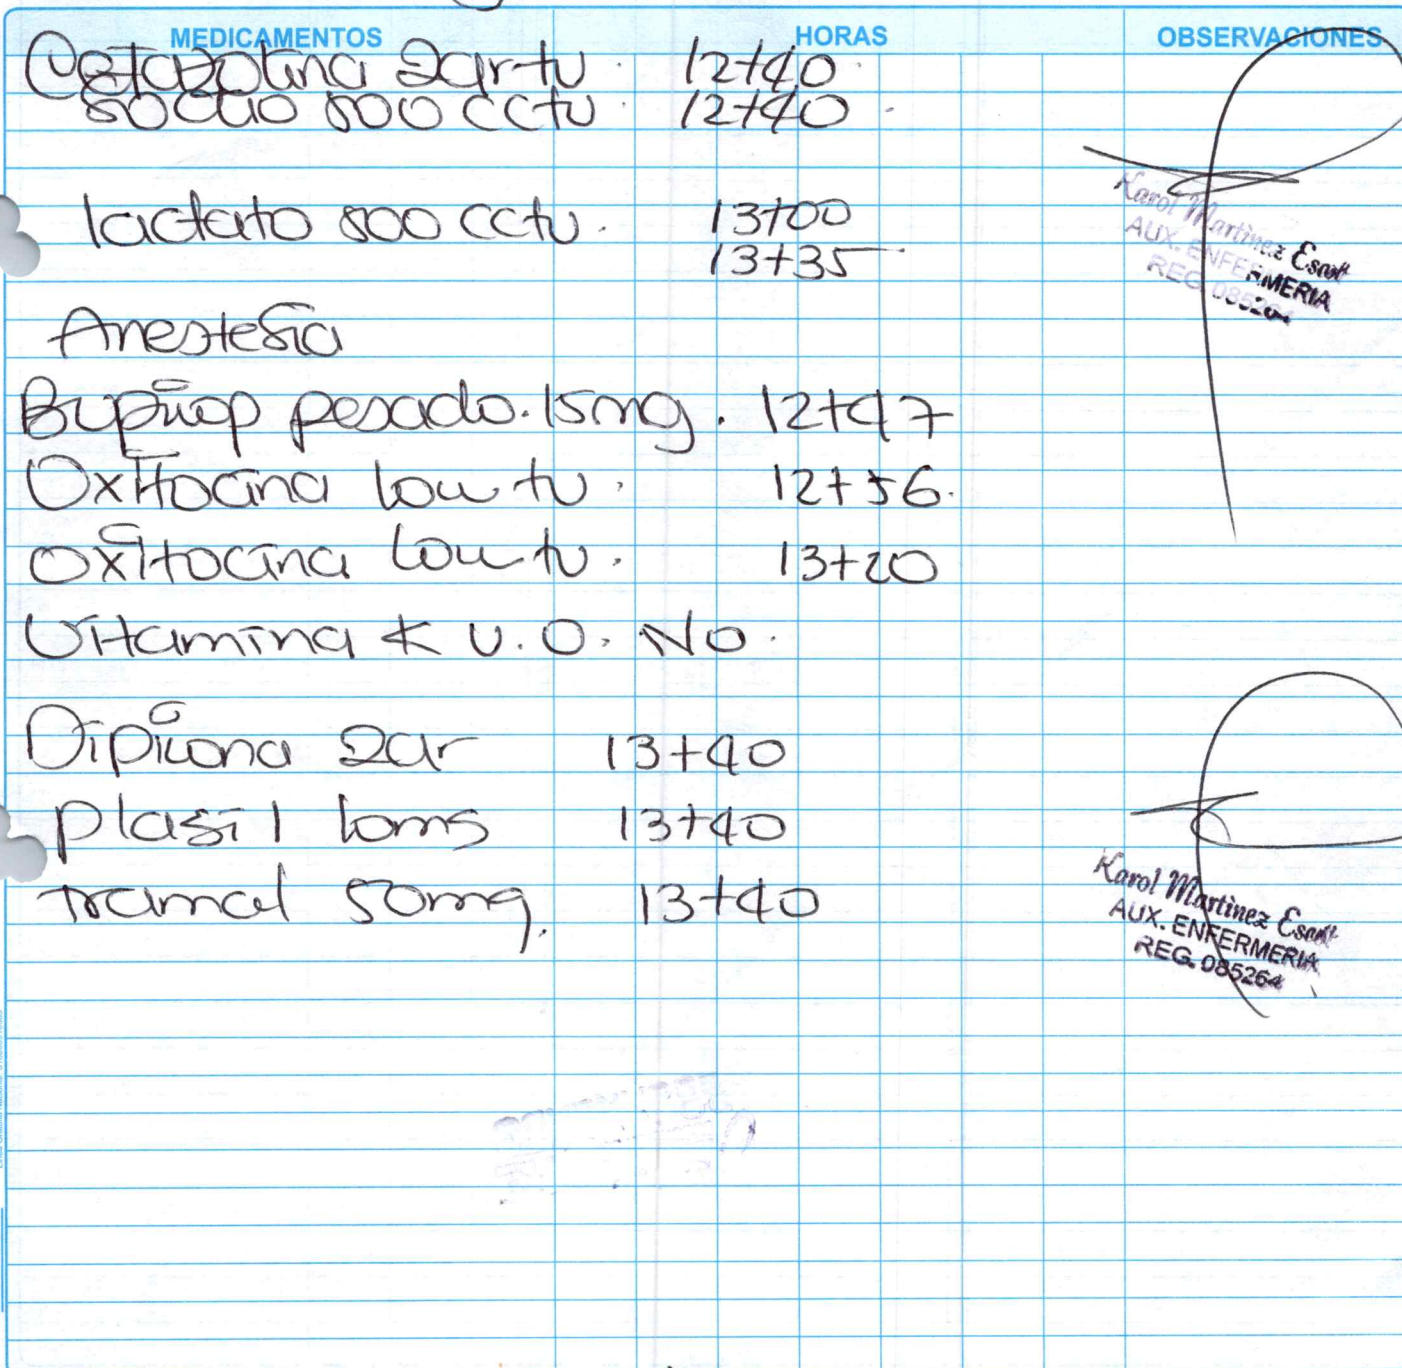 MEDICAMENTOS HORAS OBSERVACIONES
Cefazolina 2gr tv. 12+40
sodio 500 cc tv. 12+40
lactato 500 cc tv. 13+00
13+35
Anestesia
Bupirop pesado. 15mg. 12+47
Oxitocina 10u tv. 12+56.
Oxitocina 10u tv. 13+20
Vitamina K V.O. No.
Dipirona 2gr 13+40
plasil 10mg 13+40
tramal 50mg. 13+40
Karol Martinez
AUX. ENFERMERIA
REG. 085264
Karol Martinez
AUX. ENFERMERIA
REG. 085264